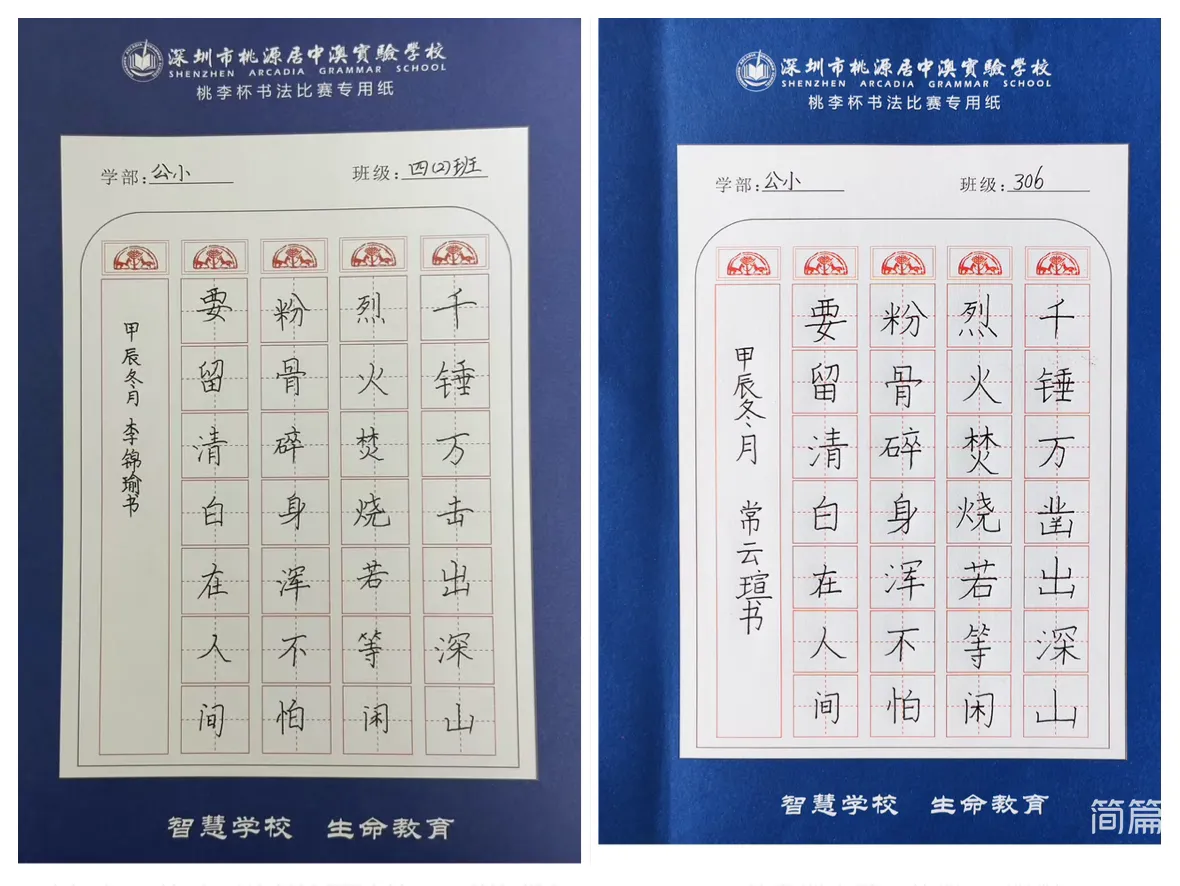 深圳市桃源居中澳實驗學校
SHENZHEN ARCADIA GRAMMAR SCHOOL
桃李杯书法比赛专用纸
学部:公小 班级:四(2)班
千锤万击出深山
烈火焚烧若等闲
粉骨碎身浑不怕
要留清白在人间
甲辰冬月 李锦瑜书
智慧学校 生命教育
深圳市桃源居中澳實驗學校
SHENZHEN ARCADIA GRAMMAR SCHOOL
桃李杯书法比赛专用纸
学部:公小 班级:306
千锤万凿出深山
烈火焚烧若等闲
粉骨碎身浑不怕
要留清白在人间
甲辰冬月 常云瑄书
智慧学校 生命教育
简篇